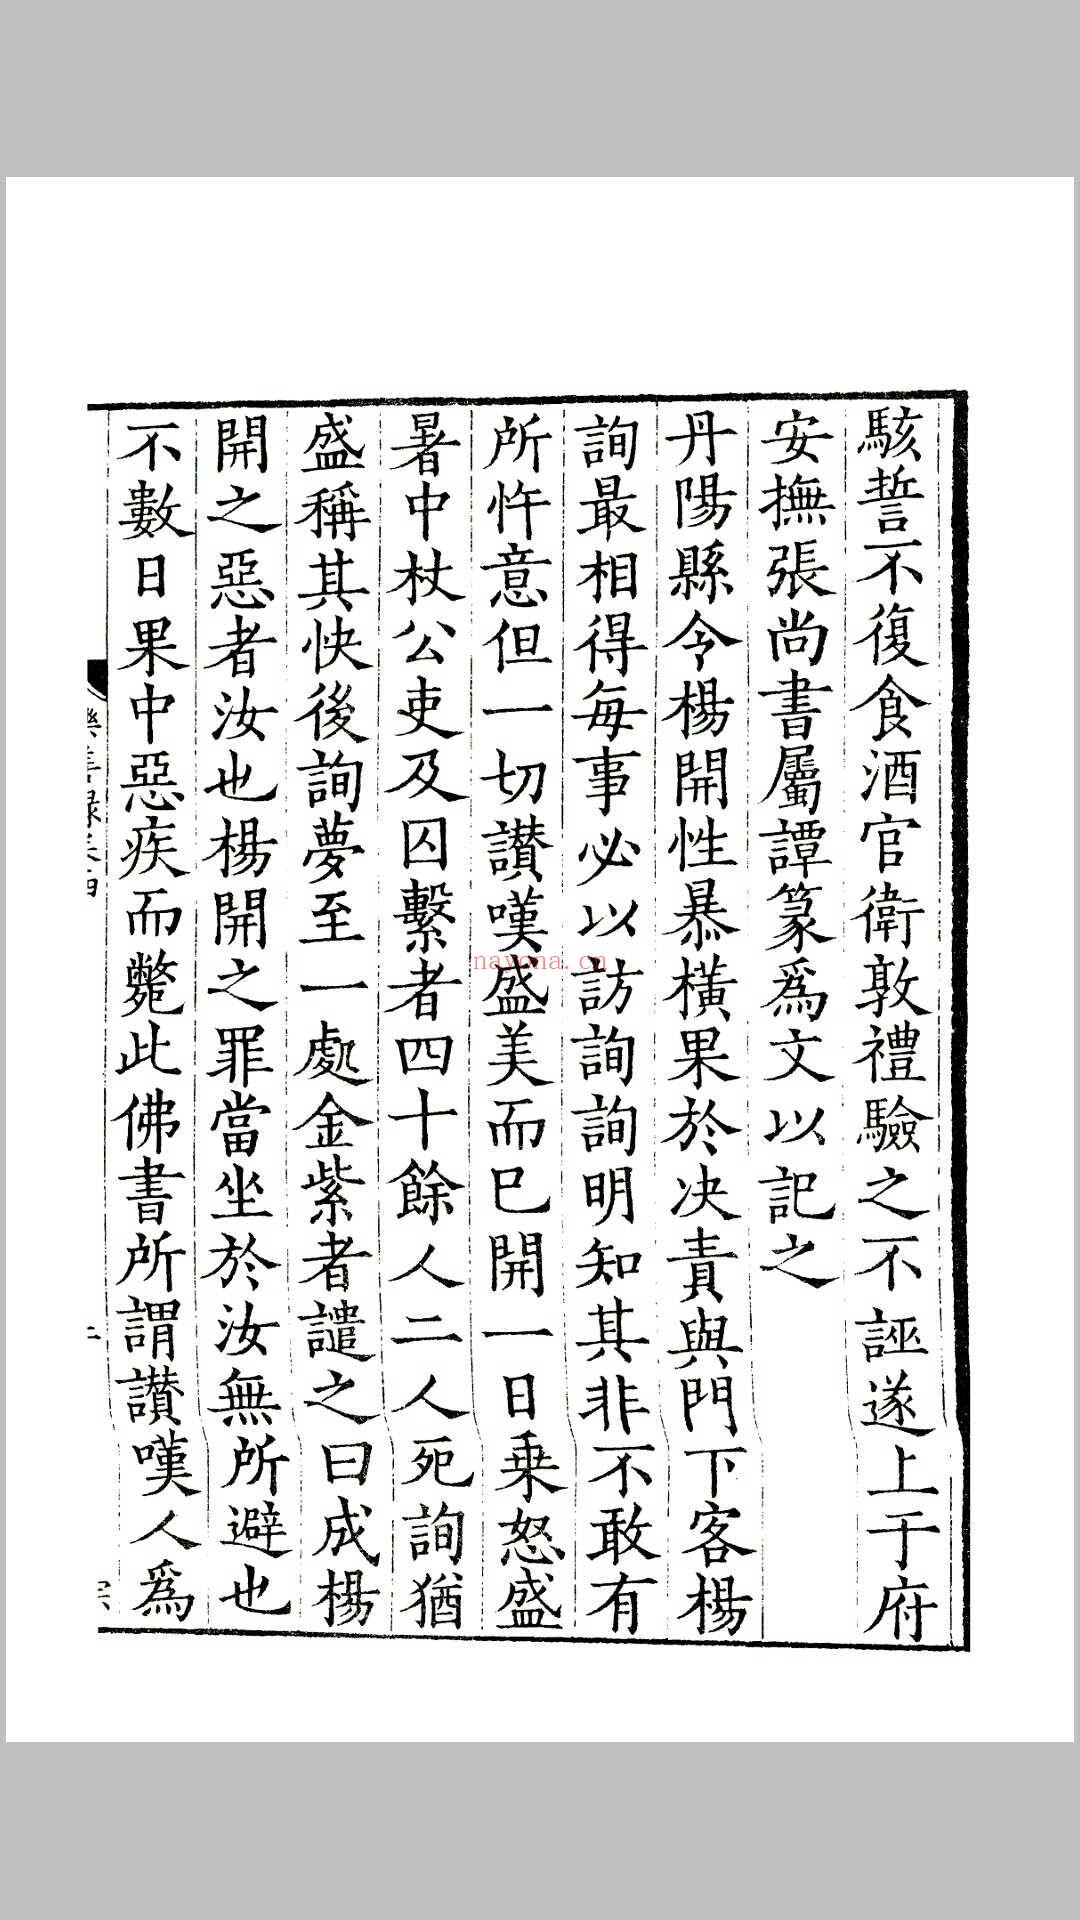 駭誓不復食酒官衛敦禮驗之不誣遂上于府
安撫張尚書屬譚篆爲文以記之
丹陽縣令楊開性暴橫果於决責與門下客楊
詢最相得每事必以訪詢詢明知其非不敢有
所忤意但一切讃嘆盛美而已開一日乗怒盛
暑中杖公吏及囚繫者四十餘人二人死詢猶
盛稱其快後詢夢至一處金紫者譴之曰成楊
開之惡者汝也楊開之罪當坐於汝無所避也
不數日果中惡疾而斃此佛書所謂讃嘆人爲
樂善録卷四
nayona.cn